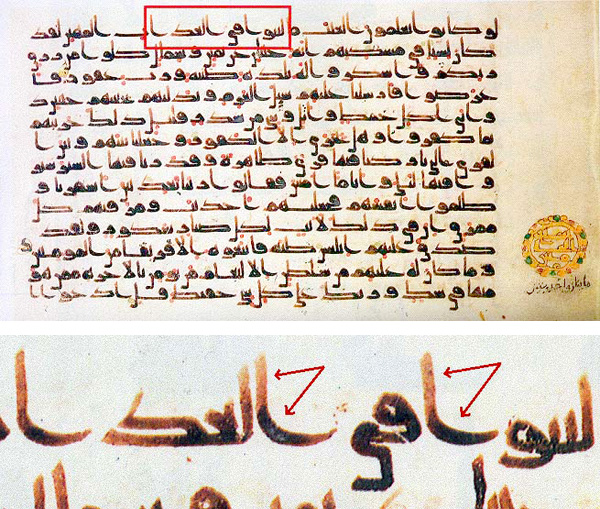 لو كانوا يعلمون الغيب ما لبثوا في العذاب المهين لقد
كان لسبا في مسكنهم اية جنتين عن يمين وشمال كلوا من رزق
ربكم واشكروا له بلدة طيبة ورب غفور فا
عرضوا فارسلنا عليهم سيل العرم وبدلنهم بجنتيهم جنتين ذو
اتي اكل خمط واثل وشي من سدر قليل ذلك جزينهم
بما كفروا وهل نجزي الا الكفور وجعلنا بينهم وبين ا
لقرى التي بركنا فيها قرى ظاهرة وقدرنا فيها السير سير
وا فيها ليالي واياما امنين فقالوا ربنا بعد بين اسفارنا و
ظلموا انفسهم فجعلنهم احاديث ومزقنهم كل
ممزق ان في ذلك لايت لكل صبار شكور ولقد
صدق عليهم ابليس ظنه فاتبعوه الا فريقا من المومنين
وما كان له عليهم من سلطن الا لنعلم من يومن بالاخرة ممن هو
منها في شك وربك على كل شي حفيظ قل ادعوا ا
لبثوا في العذا